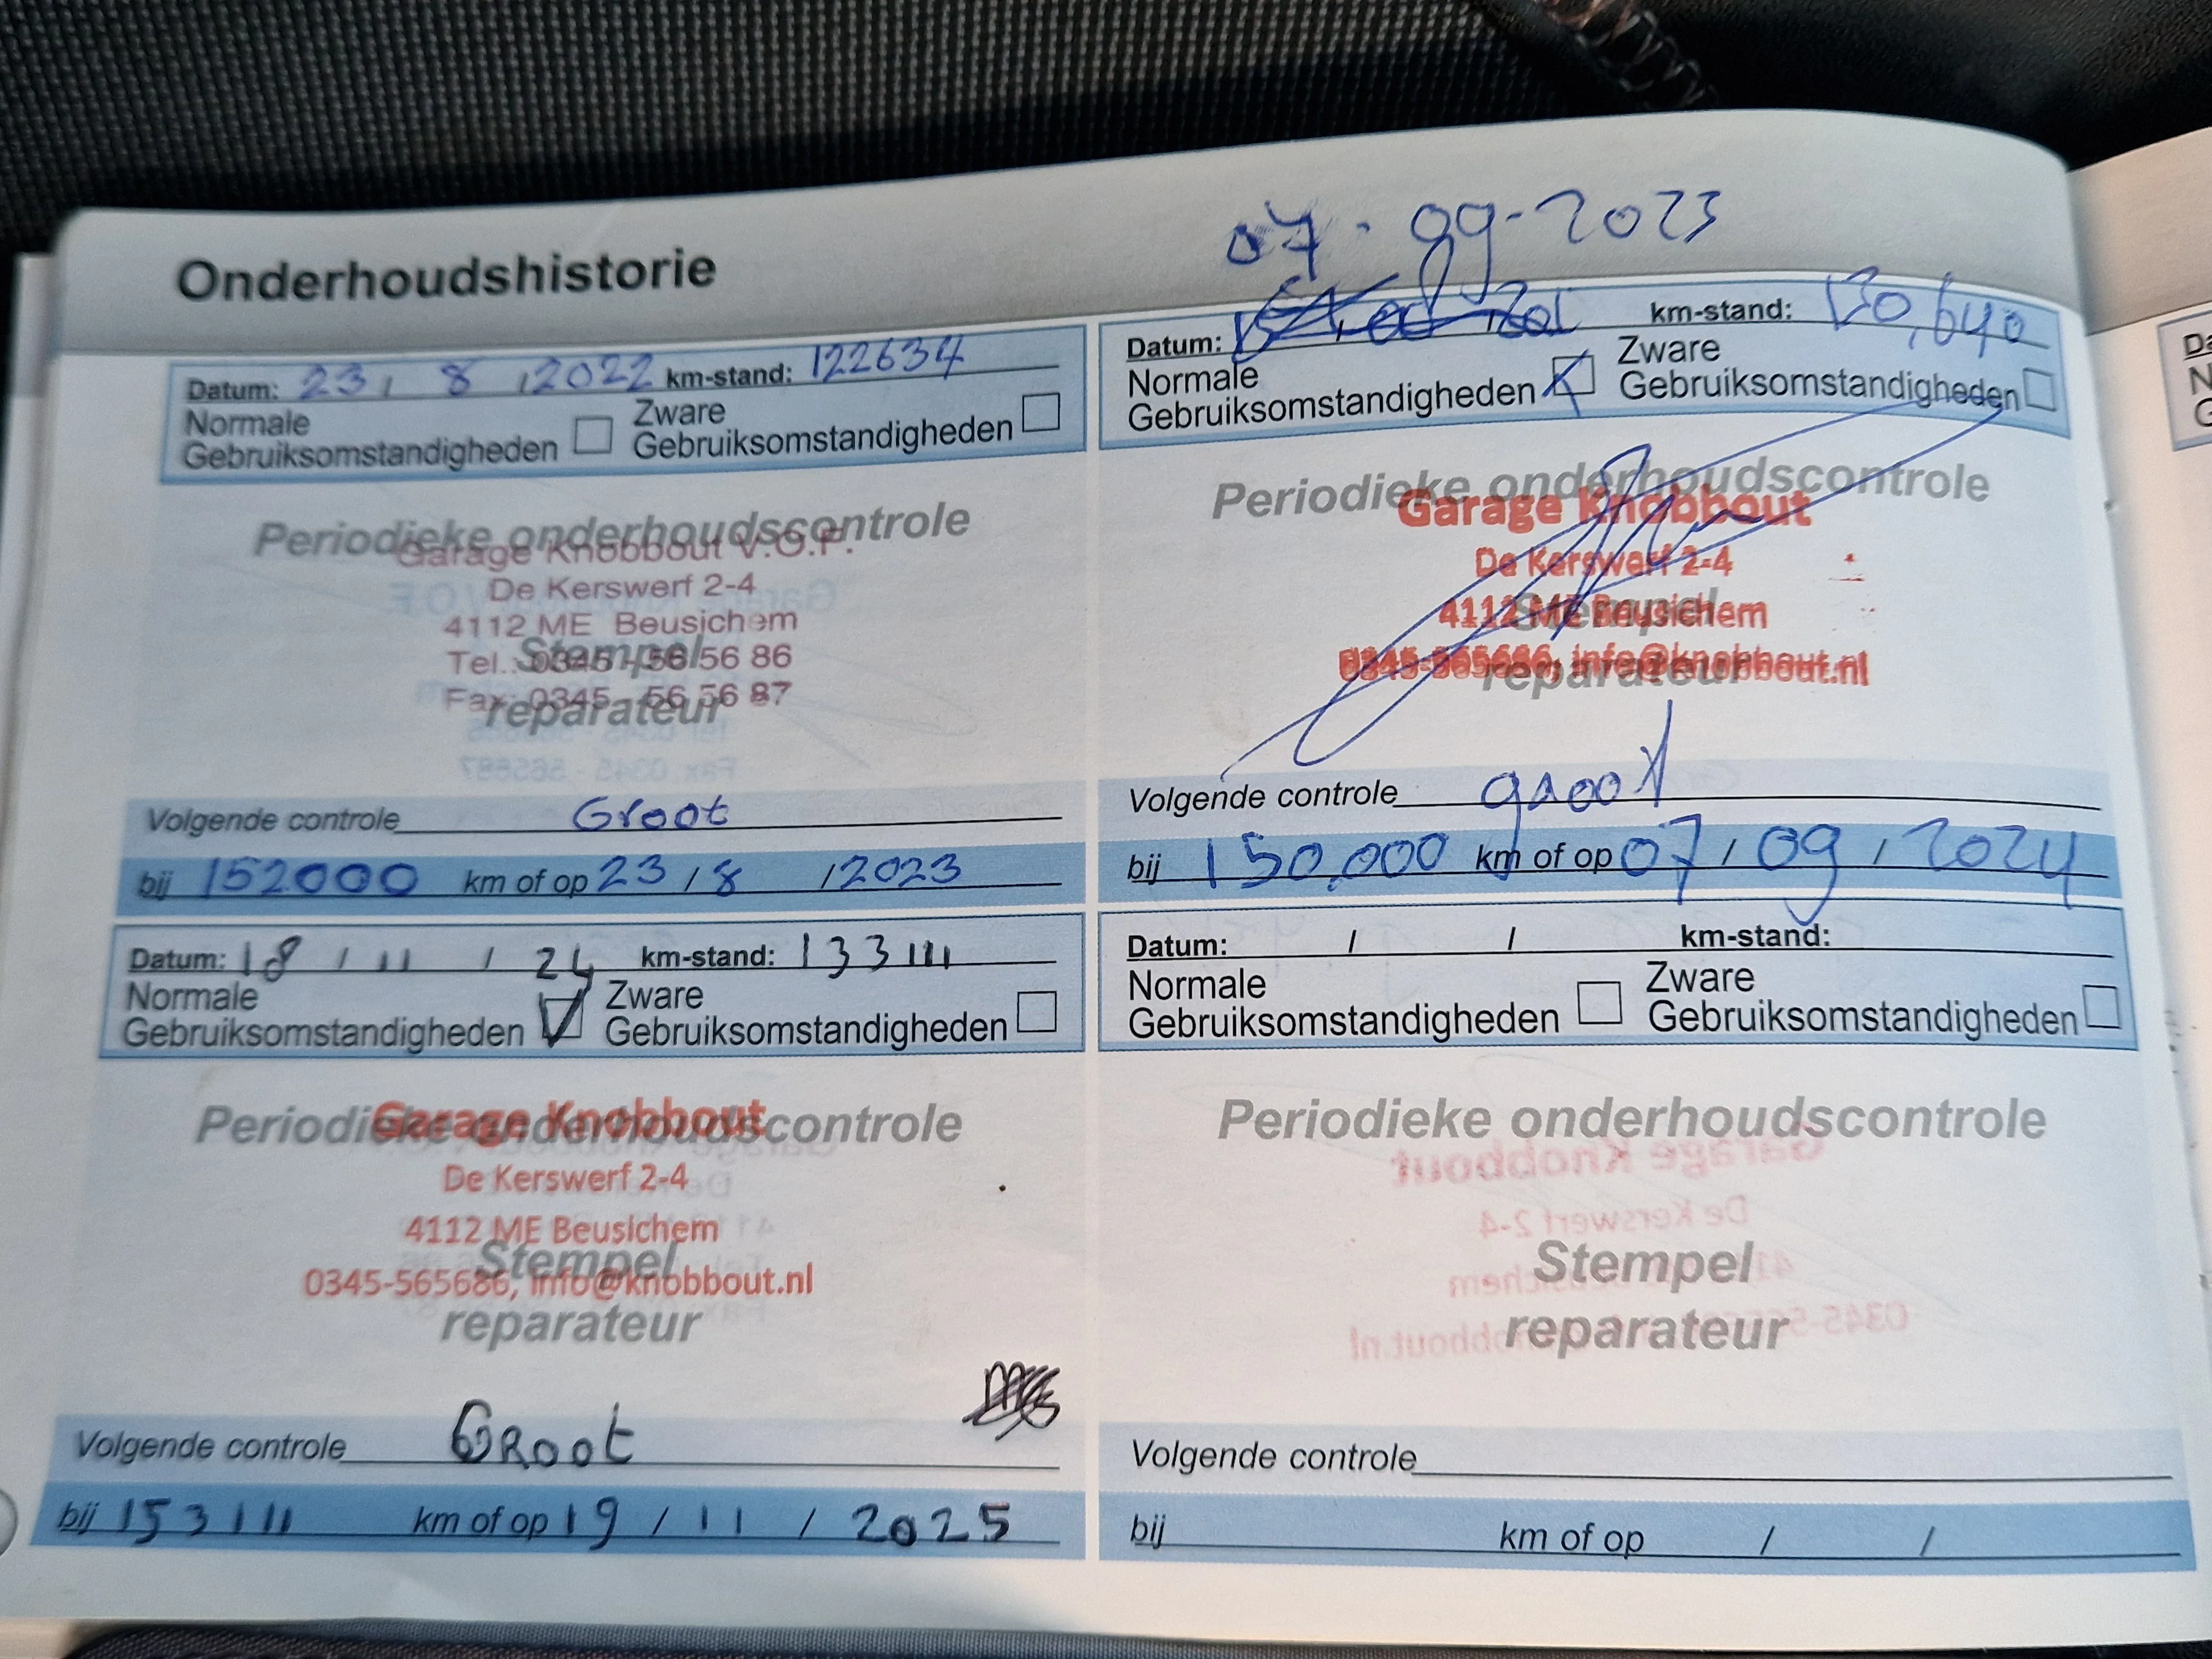 Onderhoudshistorie
Datum: 23 / 8 / 2022 km-stand: 122634
Normale
Gebruiksomstandigheden
Zware
Gebruiksomstandigheden
Periodieke onderhoudscontrole
Garage Knobbout V.O.F.
De Kerswerf 2-4
4112 ME Beusichem
Stempel
Tel.: 0345 - 56 56 86
Fax: 0345 - 56 56 87
reparateur
Volgende controle Groot
bij 152000 km of op 23 / 8 / 2023
07-09-2023
Datum: km-stand: 130,640
Normale
Gebruiksomstandigheden
Zware
Gebruiksomstandigheden
Periodieke onderhoudscontrole
Garage Knobbout
De Kerswerf 2-4
4112 ME Beusichem
Stempel
0345-565686, info@knobbout.nl
reparateur
Volgende controle groot
bij 150.000 km of op 07 / 09 / 2024
Datum: 18 / 11 / 24 km-stand: 133111
Normale
Gebruiksomstandigheden
Zware
Gebruiksomstandigheden
Periodieke onderhoudscontrole
Garage Knobbout
De Kerswerf 2-4
4112 ME Beusichem
Stempel
0345-565686, info@knobbout.nl
reparateur
Volgende controle GROOt
bij 153111 km of op 19 / 11 / 2025
Datum: / / km-stand:
Normale
Gebruiksomstandigheden
Zware
Gebruiksomstandigheden
Periodieke onderhoudscontrole
Stempel
reparateur
Volgende controle
bij km of op / /